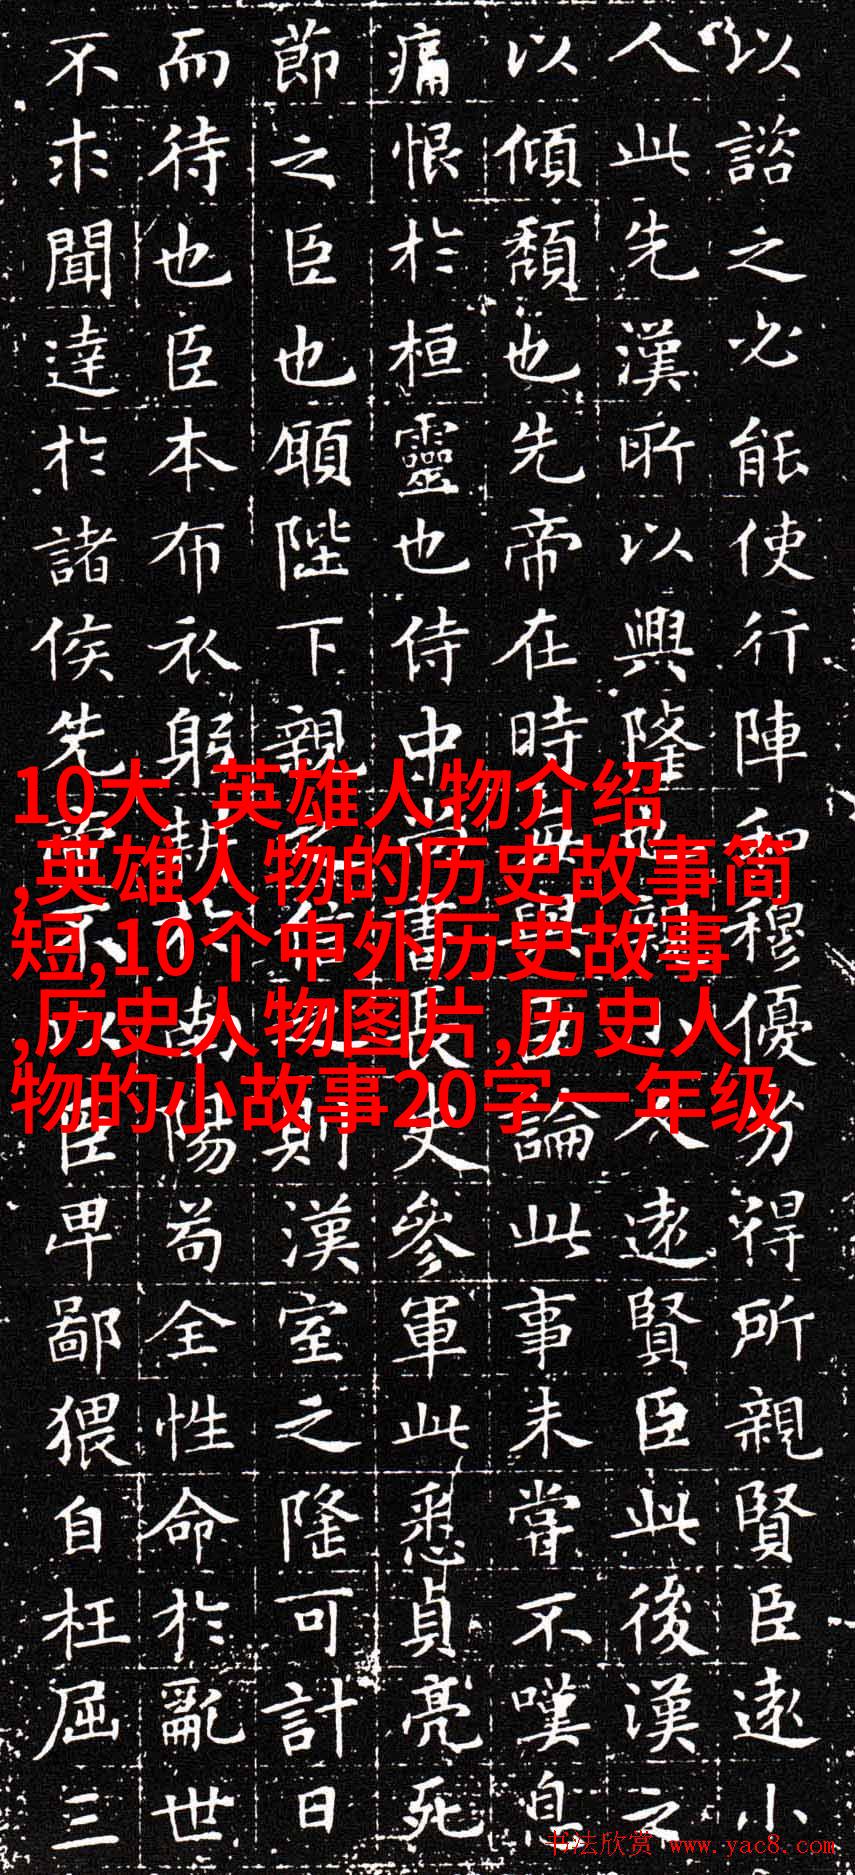 以諮之必能使行陣和穆優劣得所親賢臣遠小
人此先漢所以興隆也親小人遠賢臣此後漢之
以傾頹也先帝在時每與臣論此事未嘗不嘆息
痛恨於桓靈也侍中尚書長史參軍此悉貞亮死
節之臣也願陛下親之信之則漢室之隆可計日
而待也臣本布衣躬耕於南陽苟全性命於亂世
不求聞達於諸侯先帝不以臣卑鄙猥自枉屈三
10大 英雄人物介绍
,英雄人物的历史故事简
短,10个中外历史故事
,历史人物图片,历史人
物的小故事20字一年级
书法欣赏 www.yac8.com